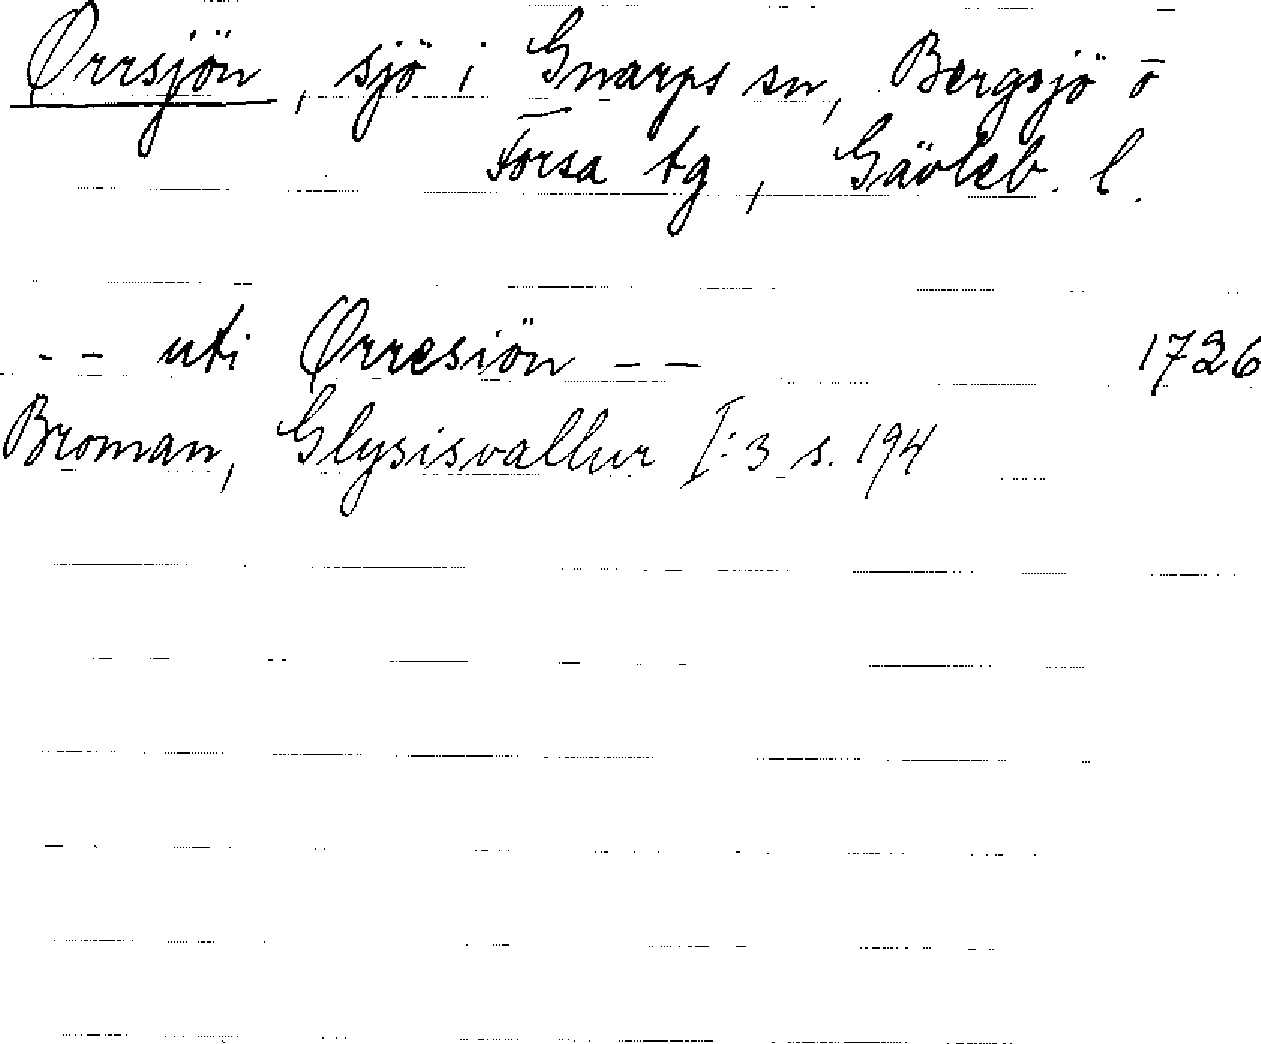 Orrsjön, sjö i Gnarps sn, Bergsjö o
Forsa tg, Gävleb. l.
-- uti Orresiön -- 1726
Broman, Glysisvallur I:3 s. 194